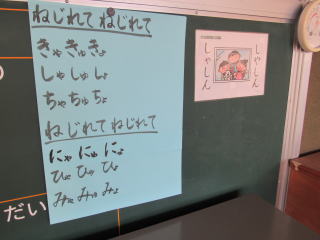 ねじれて ねじれて
きゃ きゅ きょ
しゃ しゅ しょ
ちゃ ちゅ ちょ
ねじれて ねじれて
にゃ にゅ にょ
ひゃ ひゅ ひょ
みゃ みゅ みょ
しゃしん
しやしん
の
だい